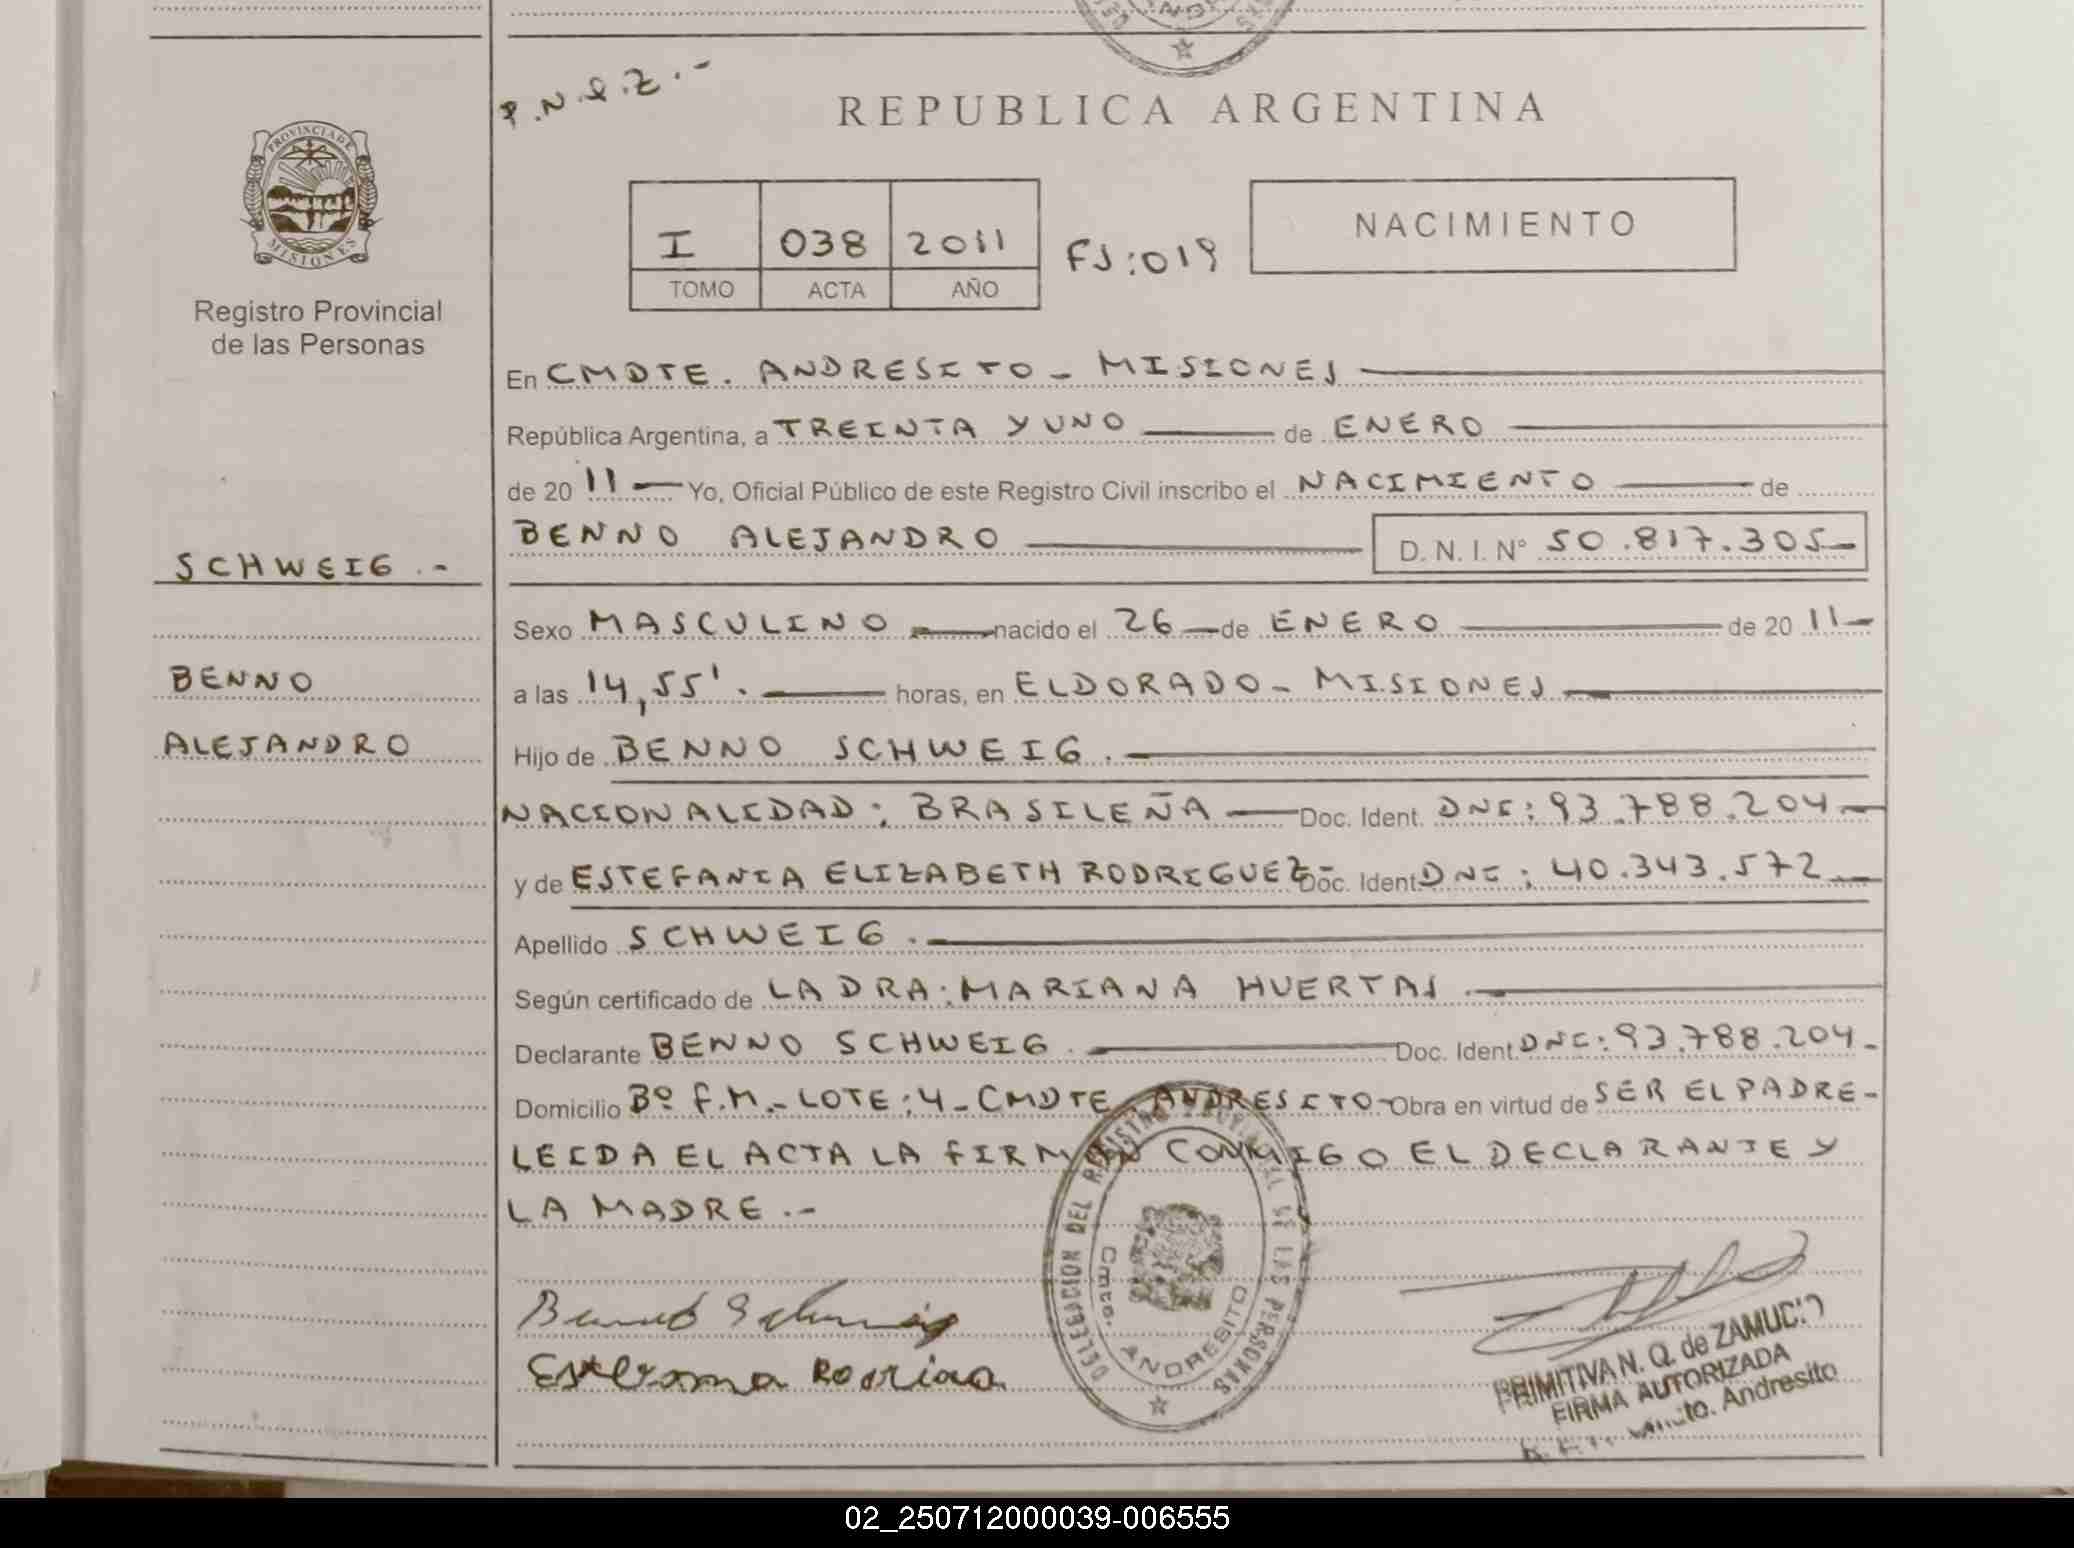 P.N.Q.Z.-
REPUBLICA ARGENTINA
PROVINCIA DE
MISIONES
Registro Provincial
de las Personas
I 038 2011
TOMO ACTA AÑO
FS:019
NACIMIENTO
En CMDTE. ANDRESITO - MISIONES
República Argentina, a TREINTA Y UNO de ENERO
de 20 11 Yo, Oficial Público de este Registro Civil inscribo el NACIMIENTO de
BENNO ALEJANDRO D. N. I. N° 50.817.305-
SCHWEIG .-
BENNO
ALEJANDRO
Sexo MASCULINO nacido el 26 de ENERO de 20 11-
a las 14,55'. horas, en ELDORADO - MISIONES
Hijo de BENNO SCHWEIG.
NACIONALIDAD: BRASILEÑA Doc. Ident. DNI: 93.788.204
y de ESTEFANIA ELIZABETH RODRIGUEZ- Doc. Ident. DNI: 40.343.572
Apellido SCHWEIG.
Según certificado de LA DRA. MARIANA HUERTAS
Declarante BENNO SCHWEIG. Doc. Ident. DNI: 93.788.204-
Domicilio Bº F.M.- LOTE: 4 - CMDTE. ANDRESITO- Obra en virtud de SER EL PADRE-
LEIDA EL ACTA LA FIRMAN CONMIGO EL DECLARANTE Y
LA MADRE .-
DELEGACION DEL REGISTRO PROVINCIAL DE LAS PERSONAS
Cmte. ANDRESITO
PRIMITIVA N. Q. de ZAMUDIO
FIRMA AUTORIZADA
Andresito
02_250712000039-006555